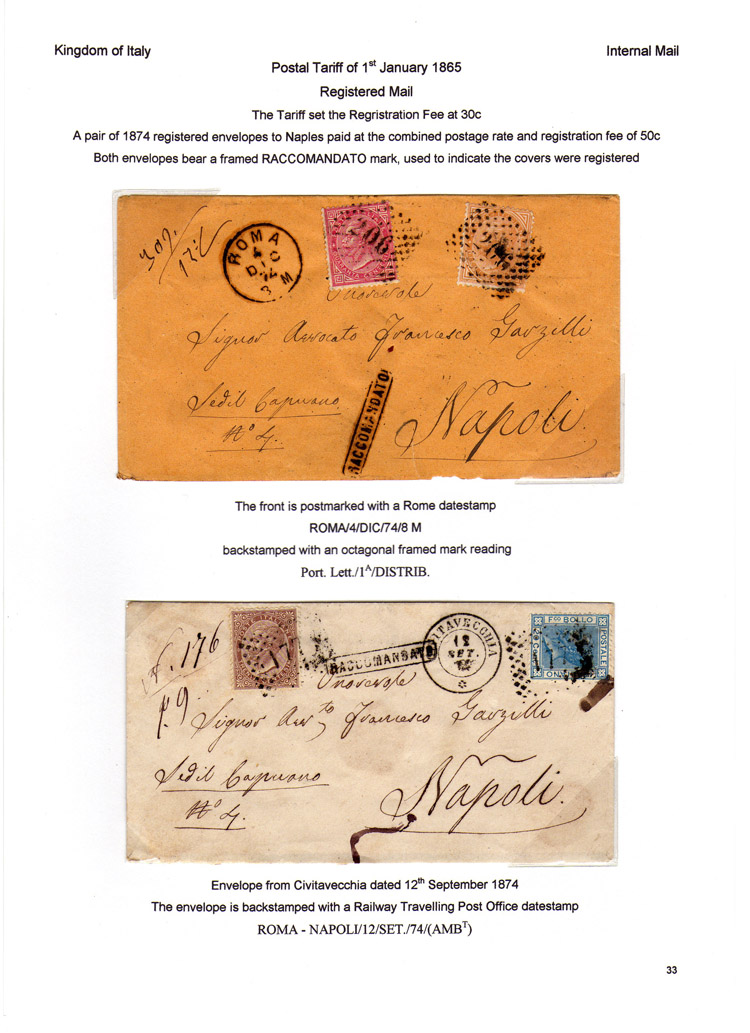 Kingdom of Italy
Internal Mail
Postal Tariff of 1st January 1865
Registered Mail
The Tariff set the Regristration Fee at 30c
A pair of 1874 registered envelopes to Naples paid at the combined postage rate and registration fee of 50c
Both envelopes bear a framed RACCOMANDATO mark, used to indicate the covers were registered
ROMA
4
DIC
74
8 M
206
206
Onorevole
Signor Avvocato Francesco Garzilli
Sedil Capuano
No 4.
Napoli.
RACCOMANDATO
The front is postmarked with a Rome datestamp
ROMA/4/DIC/74/8 M
backstamped with an octagonal framed mark reading
Port. Lett./1A/DISTRIB.
N. 176
RACCOMANDATO
CIVITAVECCHIA
12
SET.
74
FCO BOLLO
POSTALE
Onorevole
Signor Avvto Francesco Garzilli
Sedil Capuano
No 4.
Napoli.
Envelope from Civitavecchia dated 12th September 1874
The envelope is backstamped with a Railway Travelling Post Office datestamp
ROMA - NAPOLI/12/SET./74/(AMBT)
33